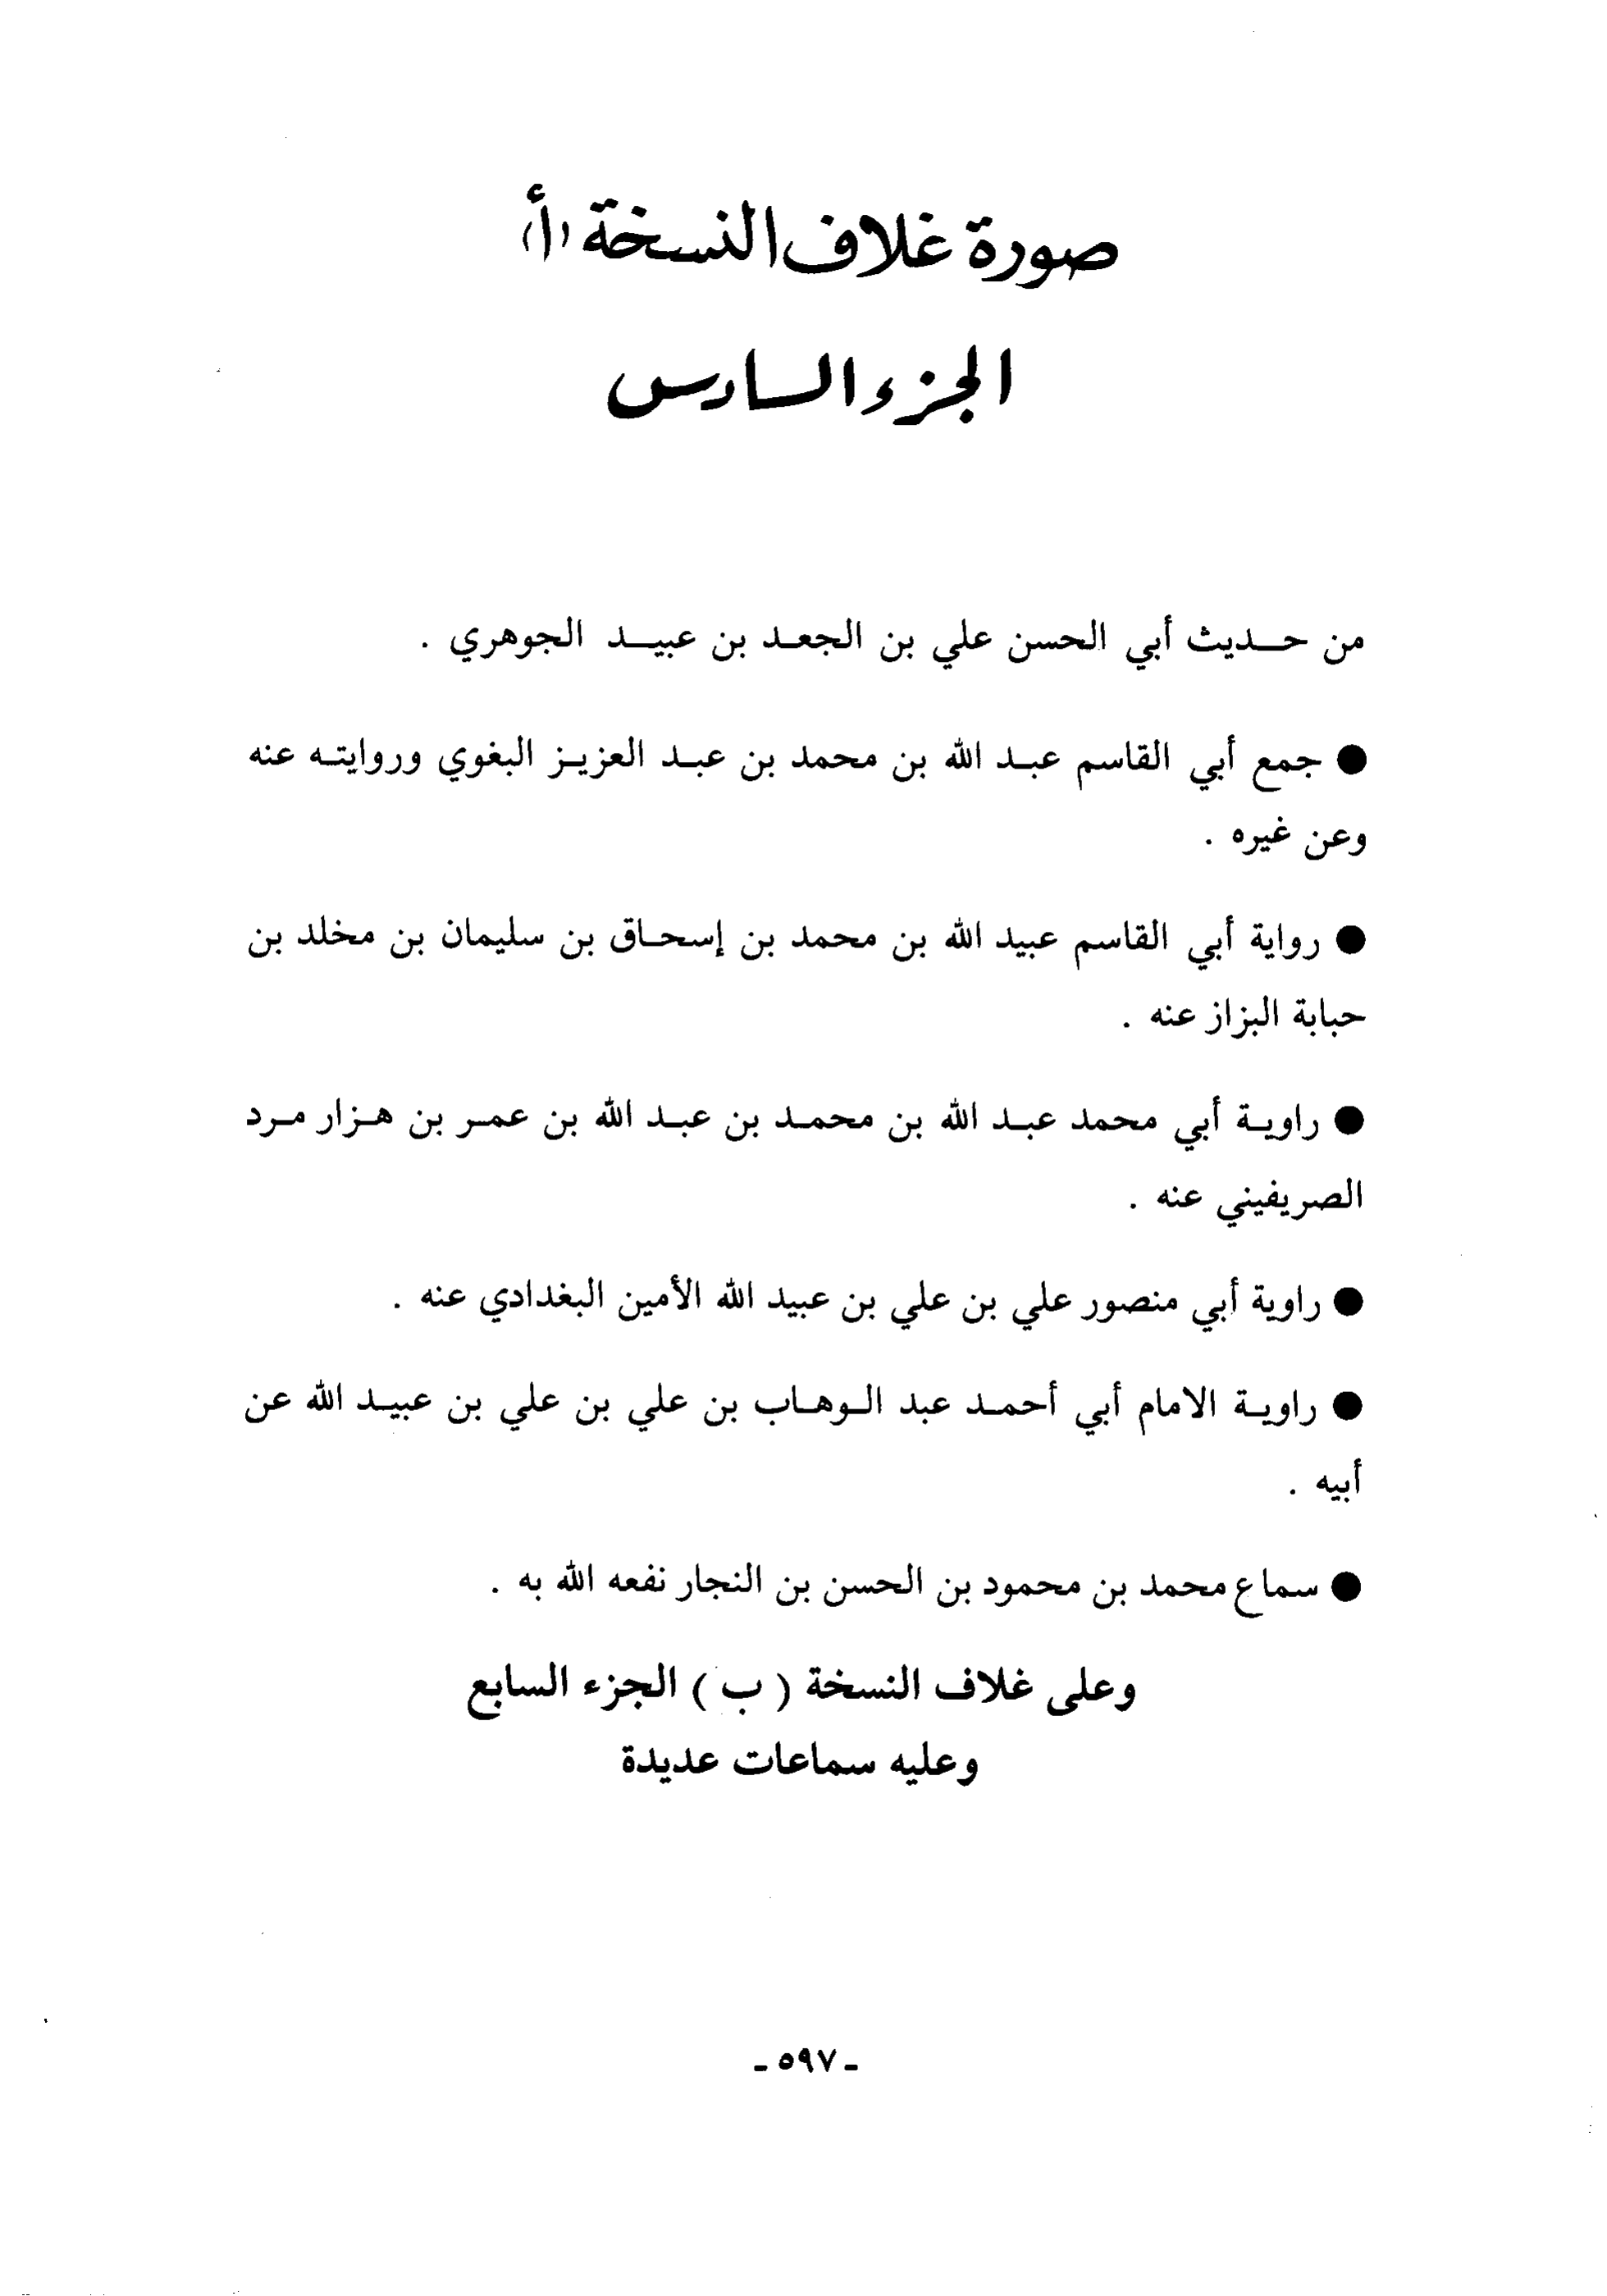 صورة غلاف النسخة (أ)
الجزء السادس
من حديث أبي الحسن علي بن الجعد بن عبيد الجوهري .
● جمع أبي القاسم عبد الله بن محمد بن عبد العزيز البغوي وروايته عنه
وعن غيره .
● رواية أبي القاسم عبيد الله بن محمد بن إسحاق بن سليمان بن مخلد بن
حبابة البزاز عنه .
● راوية أبي محمد عبد الله بن محمد بن عبد الله بن عمر بن هزار مرد
الصريفيني عنه .
● راوية أبي منصور علي بن علي بن عبيد الله الأمين البغدادي عنه .
● راوية الامام أبي أحمد عبد الوهاب بن علي بن علي بن عبيد الله عن
أبيه .
● سماع محمد بن محمود بن الحسن بن النجار نفعه الله به .
وعلى غلاف النسخة ( ب ) الجزء السابع
وعليه سماعات عديدة
- ٥٩٧ -